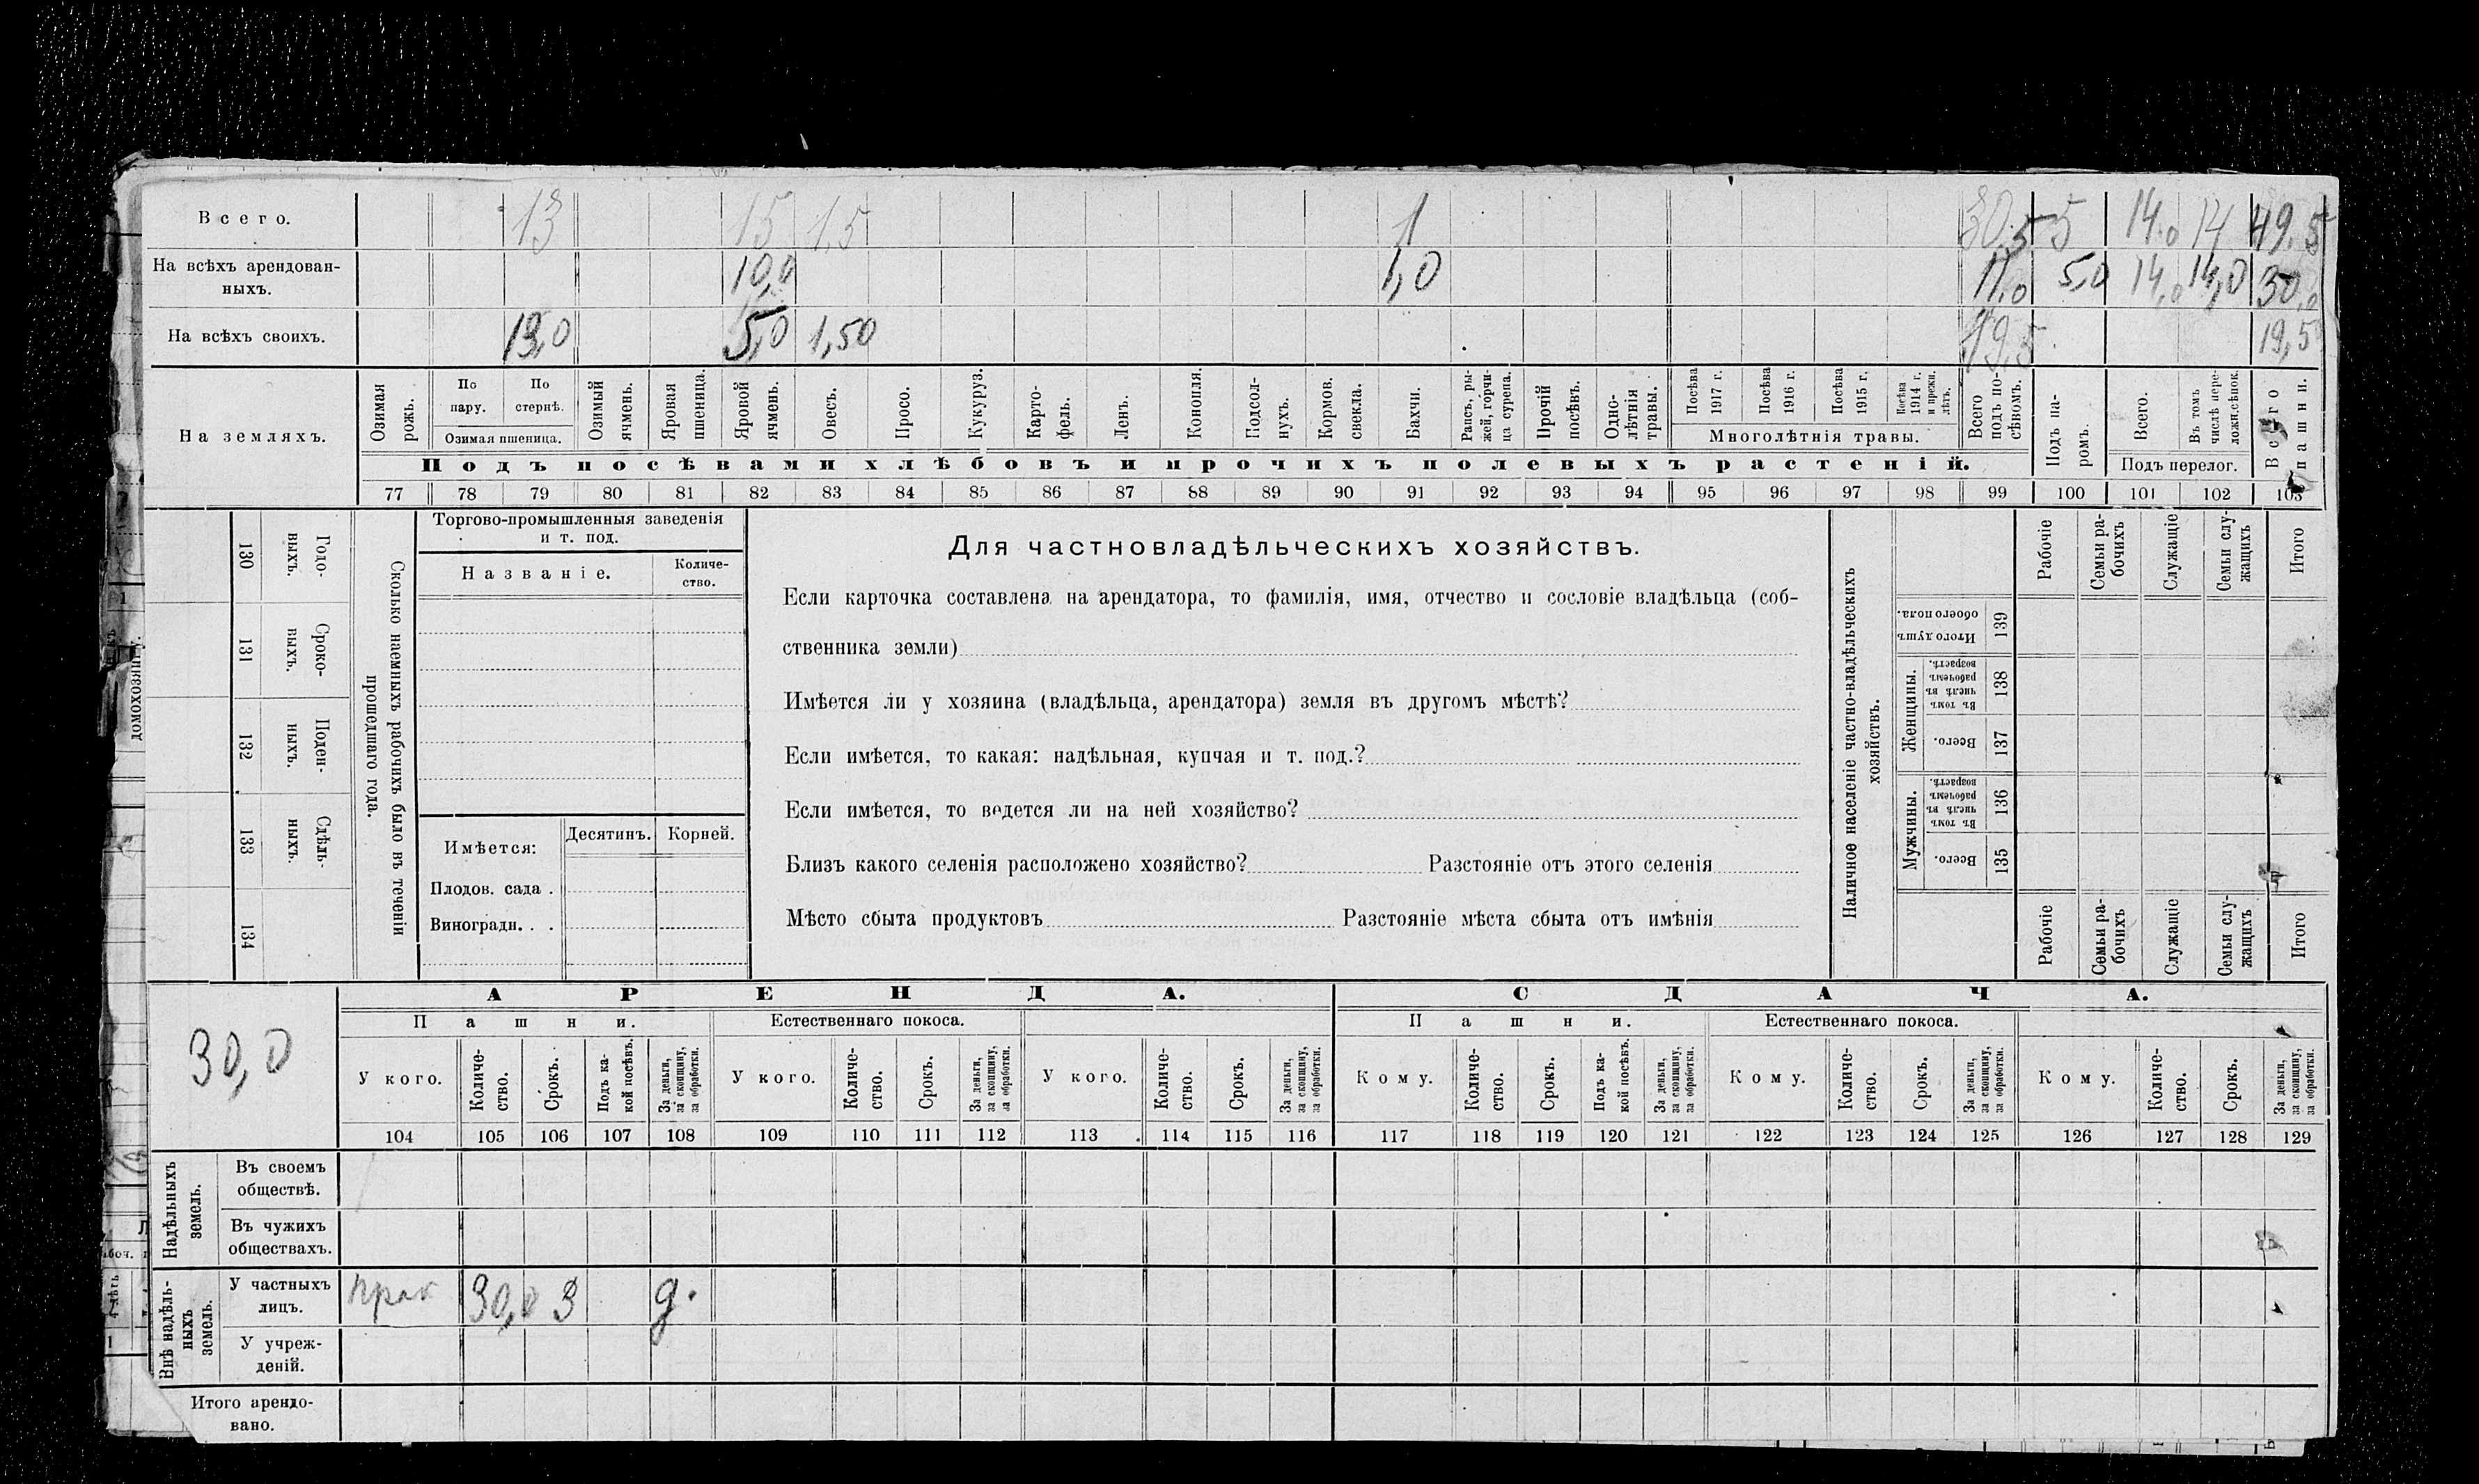 Всего. 13 15 1,5 1 30,5 5 14,0 14 49,5
На всѣхъ арендован-
ныхъ. 10,0 1,0 11,0 5,0 14,0 14,0 30,0
На всѣхъ своихъ. 13,0 5,0 1,50 19,5 19,5
На земляхъ.
Озимая рожь.
По пару.
По стернѣ.
Озимая пшеница.
Озимый ячмень.
Яровая пшеница.
Яровой ячмень.
Овесъ.
Просо.
Кукуруз.
Карто-
фель.
Ленъ.
Конопля.
Подсол-
нухъ.
Кормов. свекла.
Бахчи.
Рапсъ, ры-
жей, горчи-
ца сурепа.
Прочій посѣвъ.
Одно-
лѣтнія травы.
Посѣва 1917 г.
Посѣва 1916 г.
Посѣва 1915 г.
Посѣва 1914 г. и прежн. лѣтъ.
Многолѣтнія травы.
Всего подъ по-
сѣвомъ.
Подъ па-
ромъ.
Всего.
Въ томъ числѣ пере-
лож.сѣнок.
Подъ перелог.
Всего пашни.
Подъ посѣвами хлѣбовъ и прочихъ полевыхъ растеній.
77 78 79 80 81 82 83 84 85 86 87 88 89 90 91 92 93 94 95 96 97 98 99 100 101 102 103
домохозяину.
130 Годо-
выхъ.
131 Сроко-
выхъ.
132 Поден-
ныхъ.
133 Сдѣль-
ныхъ.
134
Сколько наемныхъ рабочихъ было въ теченіи
прошедшаго года.
Торгово-промышленныя заведенія
и т. под.
Названіе.
Количе-
ство.
Имѣется:
Десятинъ. Корней.
Плодов. сада .
Виноградн. . .
Для частновладѣльческихъ хозяйствъ.
Если карточка составлена на арендатора, то фамилія, имя, отчество и сословіе владѣльца (соб-
ственника земли)
Имѣется ли у хозяина (владѣльца, арендатора) земля въ другомъ мѣстѣ?
Если имѣется, то какая: надѣльная, купчая и т. под.?
Если имѣется, то ведется ли на ней хозяйство?
Близъ какого селенія расположено хозяйство? Разстояніе отъ этого селенія
Мѣсто сбыта продуктовъ Разстояніе мѣста сбыта отъ имѣнія
Наличное населеніе частно-владѣльческихъ
хозяйствъ.
Рабочіе
Семьи ра-
бочихъ
Служащіе
Семьи слу-
жащихъ
Итого
Итого душъ обоего пола. 139
Женщины.
Въ томъ числѣ въ рабочемъ возрастѣ. 138
Всего. 137
Мужчины.
Въ томъ числѣ въ рабочемъ возрастѣ. 136
Всего. 135
Рабочіе
Семьи ра-
бочихъ
Служащіе
Семьи слу-
жащихъ
Итого
30,0
АРЕНДА. СДАЧА.
Пашни. Естественнаго покоса. Пашни. Естественнаго покоса.
У кого.
Количе-
ство.
Срокъ.
Подъ ка-
кой посѣвъ.
За деньги,
за скопщину,
за обработки.
У кого.
Количе-
ство.
Срокъ.
За деньги,
за скопщину,
за обработки.
У кого.
Количе-
ство.
Срокъ.
За деньги,
за скопщину,
за обработки.
Кому.
Количе-
ство.
Срокъ.
Подъ ка-
кой посѣвъ.
За деньги,
за скопщину,
за обработки.
Кому.
Количе-
ство.
Срокъ.
За деньги,
за скопщину,
за обработки.
Кому.
Количе-
ство.
Срокъ.
За деньги,
за скопщину,
за обработки.
104 105 106 107 108 109 110 111 112 113 114 115 116 117 118 119 120 121 122 123 124 125 126 127 128 129
Надѣльныхъ
земель.
Въ своемъ
обществѣ.
Въ чужихъ
обществахъ.
Внѣ надѣль-
ныхъ
земель.
У частныхъ
лицъ. 30,0 3 д.
У учреж-
деній.
Итого арендо-
вано.